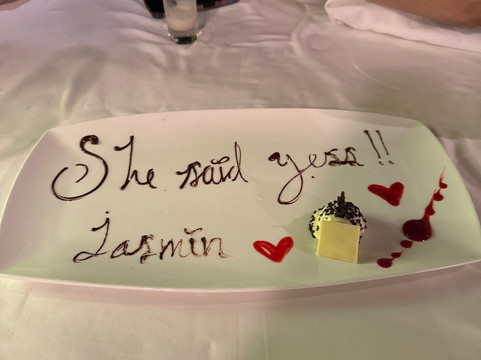 She said yess!!
Jasmin